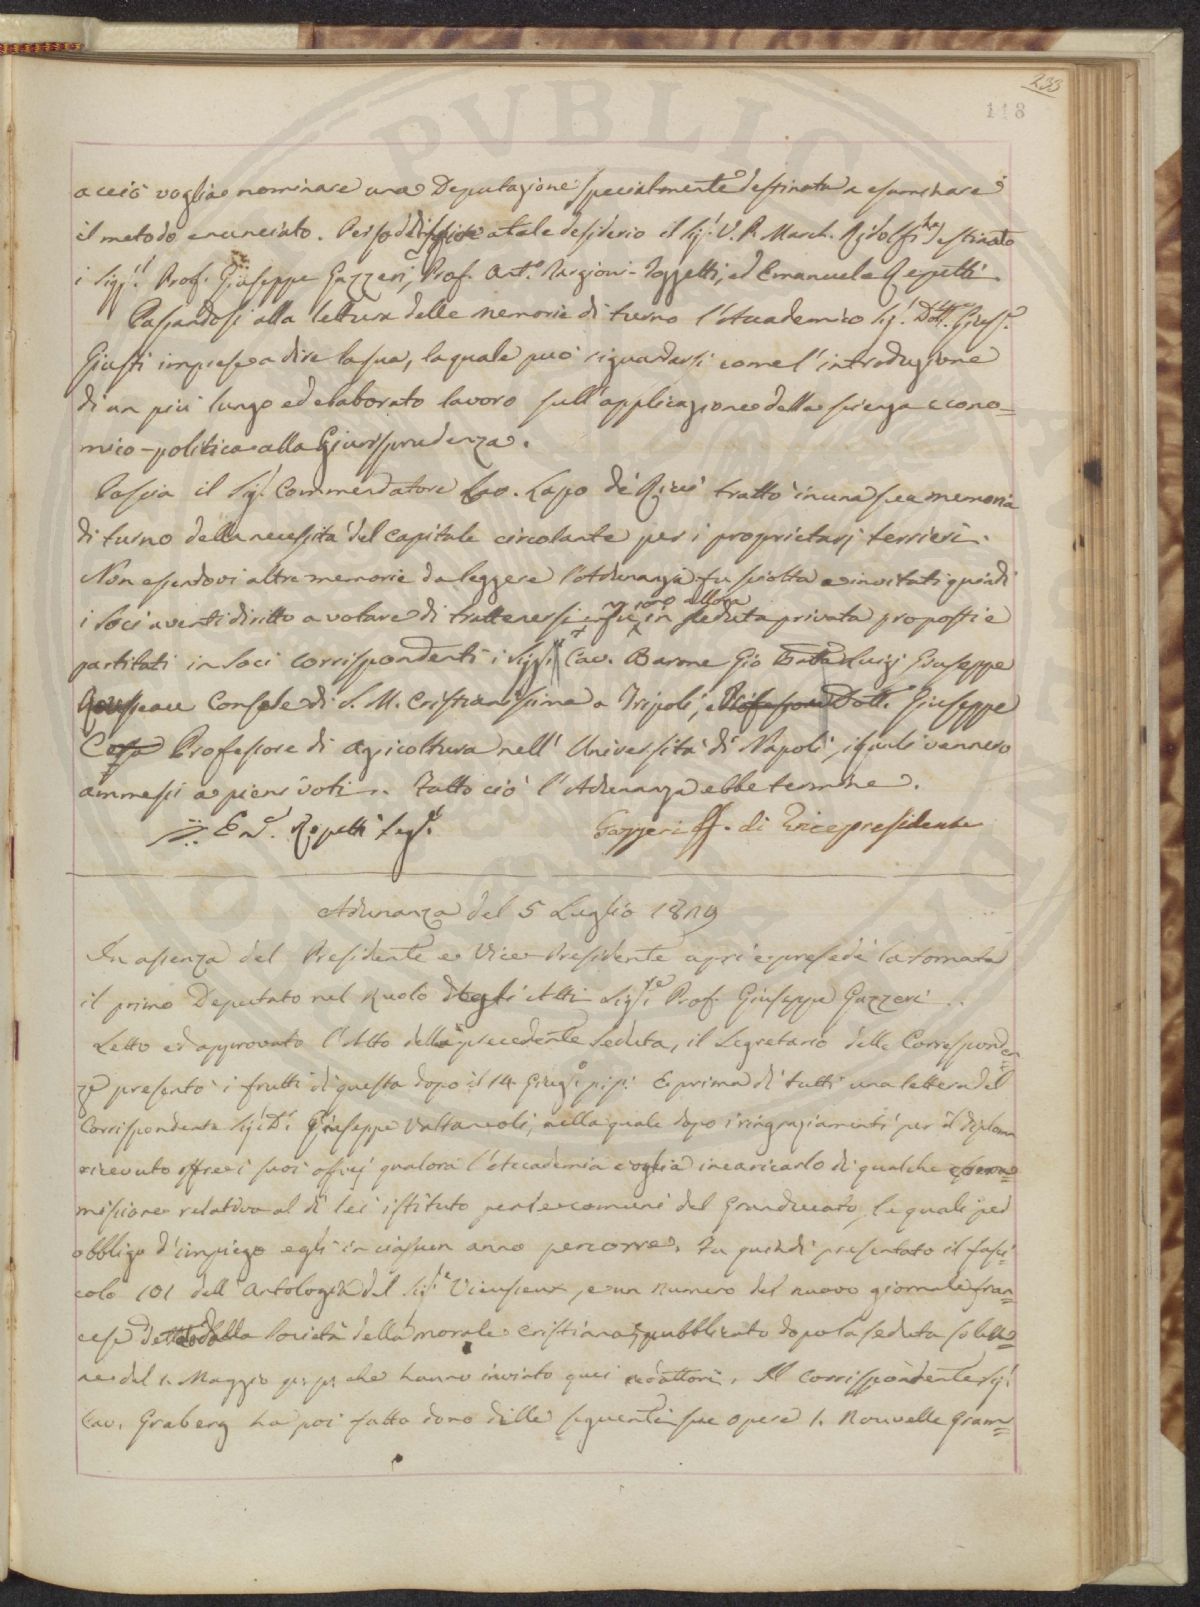 233
118
acciò voglia nominare una Deputazione specialmente destinata a esaminare
il metodo enunciato. Per sodisfare a tale desiderio il Sig.r V. P. March. Ridolfi ha destinato
i Sigg.ri Prof. Giuseppe Gazzeri, Prof. Ant.o Targioni-Tozzetti, ed Emanuele Repetti.
Passandosi alla lettura delle memorie di turno l'Accademico Sig. Dott. Gius.e
Giusti imprese a dire la sua, la quale può riguardarsi come l'introduzione
di un più lungo ed elaborato lavoro sull'applicazione della scienza econo=
mico-politica alla Giurisprudenza.
Poscia il Sig.r Commendatore Cav. Lapo de' Ricci trattò in una sua memoria
di turno della necessità del capitale circolante per i proprietarj terrieri.
Non essendovi altre memorie da leggere l'Adunanza fu sciolta e invitati quindi
i Soci aventi diritto a votare di trattenersi in seduta privata proposti e
furono allora
partitati in Soci corrispondenti i Sigg.ri Cav. Barone Gio Batta Luigi Giuseppe
Rousseau Console di S. M. Cristianissima a Tripoli, e Professore Dott. Giuseppe
Professore di agricoltura nell' Università di Napoli, i quali vennero
ammessi a pieni voti. Fatto ciò l'Adunanza ebbe termine.
E. Repetti Seg.o Gazzeri ff. di Vicepresidente
Adunanza del 5 Luglio 1829
In assenza del Presidente e Vice-Presidente aprì e presedè la tornata
il primo Deputato nel Ruolo degli Atti Sig.re Prof. Giuseppe Gazzeri.
Letto ed approvato l'Atto della precedente Seduta, il Segretario delle Corrisponden=
ze presentò i frutti di questa dopo il 14 Giug.o p.p. E prima di tutti una lettera del
Corrispondente Sig.r D.r Giuseppe Valtancoli, nella quale dopo i ringraziamenti per il diploma
ricevuto offre i suoi offizj qualora l'Accademia voglia incaricarlo di qualche com=
missione relativa al di lei istituto per le comuni del Granducato, le quali per
obbligo d'impiego egli in ciascun anno percorre. Fu quindi presentato il fasci=
colo 101 dell'Antologia del Sig.re Vieusseux, e un numero del nuovo giornale fran=
cese della Società della morale cristiana, pubblicato dopo la seduta solen=
ne del 1. Maggio p.p. che hanno inviato quei redattori. Il corrispondente Sig.r
Cav. Graberg ha poi fatto dono delle seguenti sue opere 1. Nouvelle Gram=